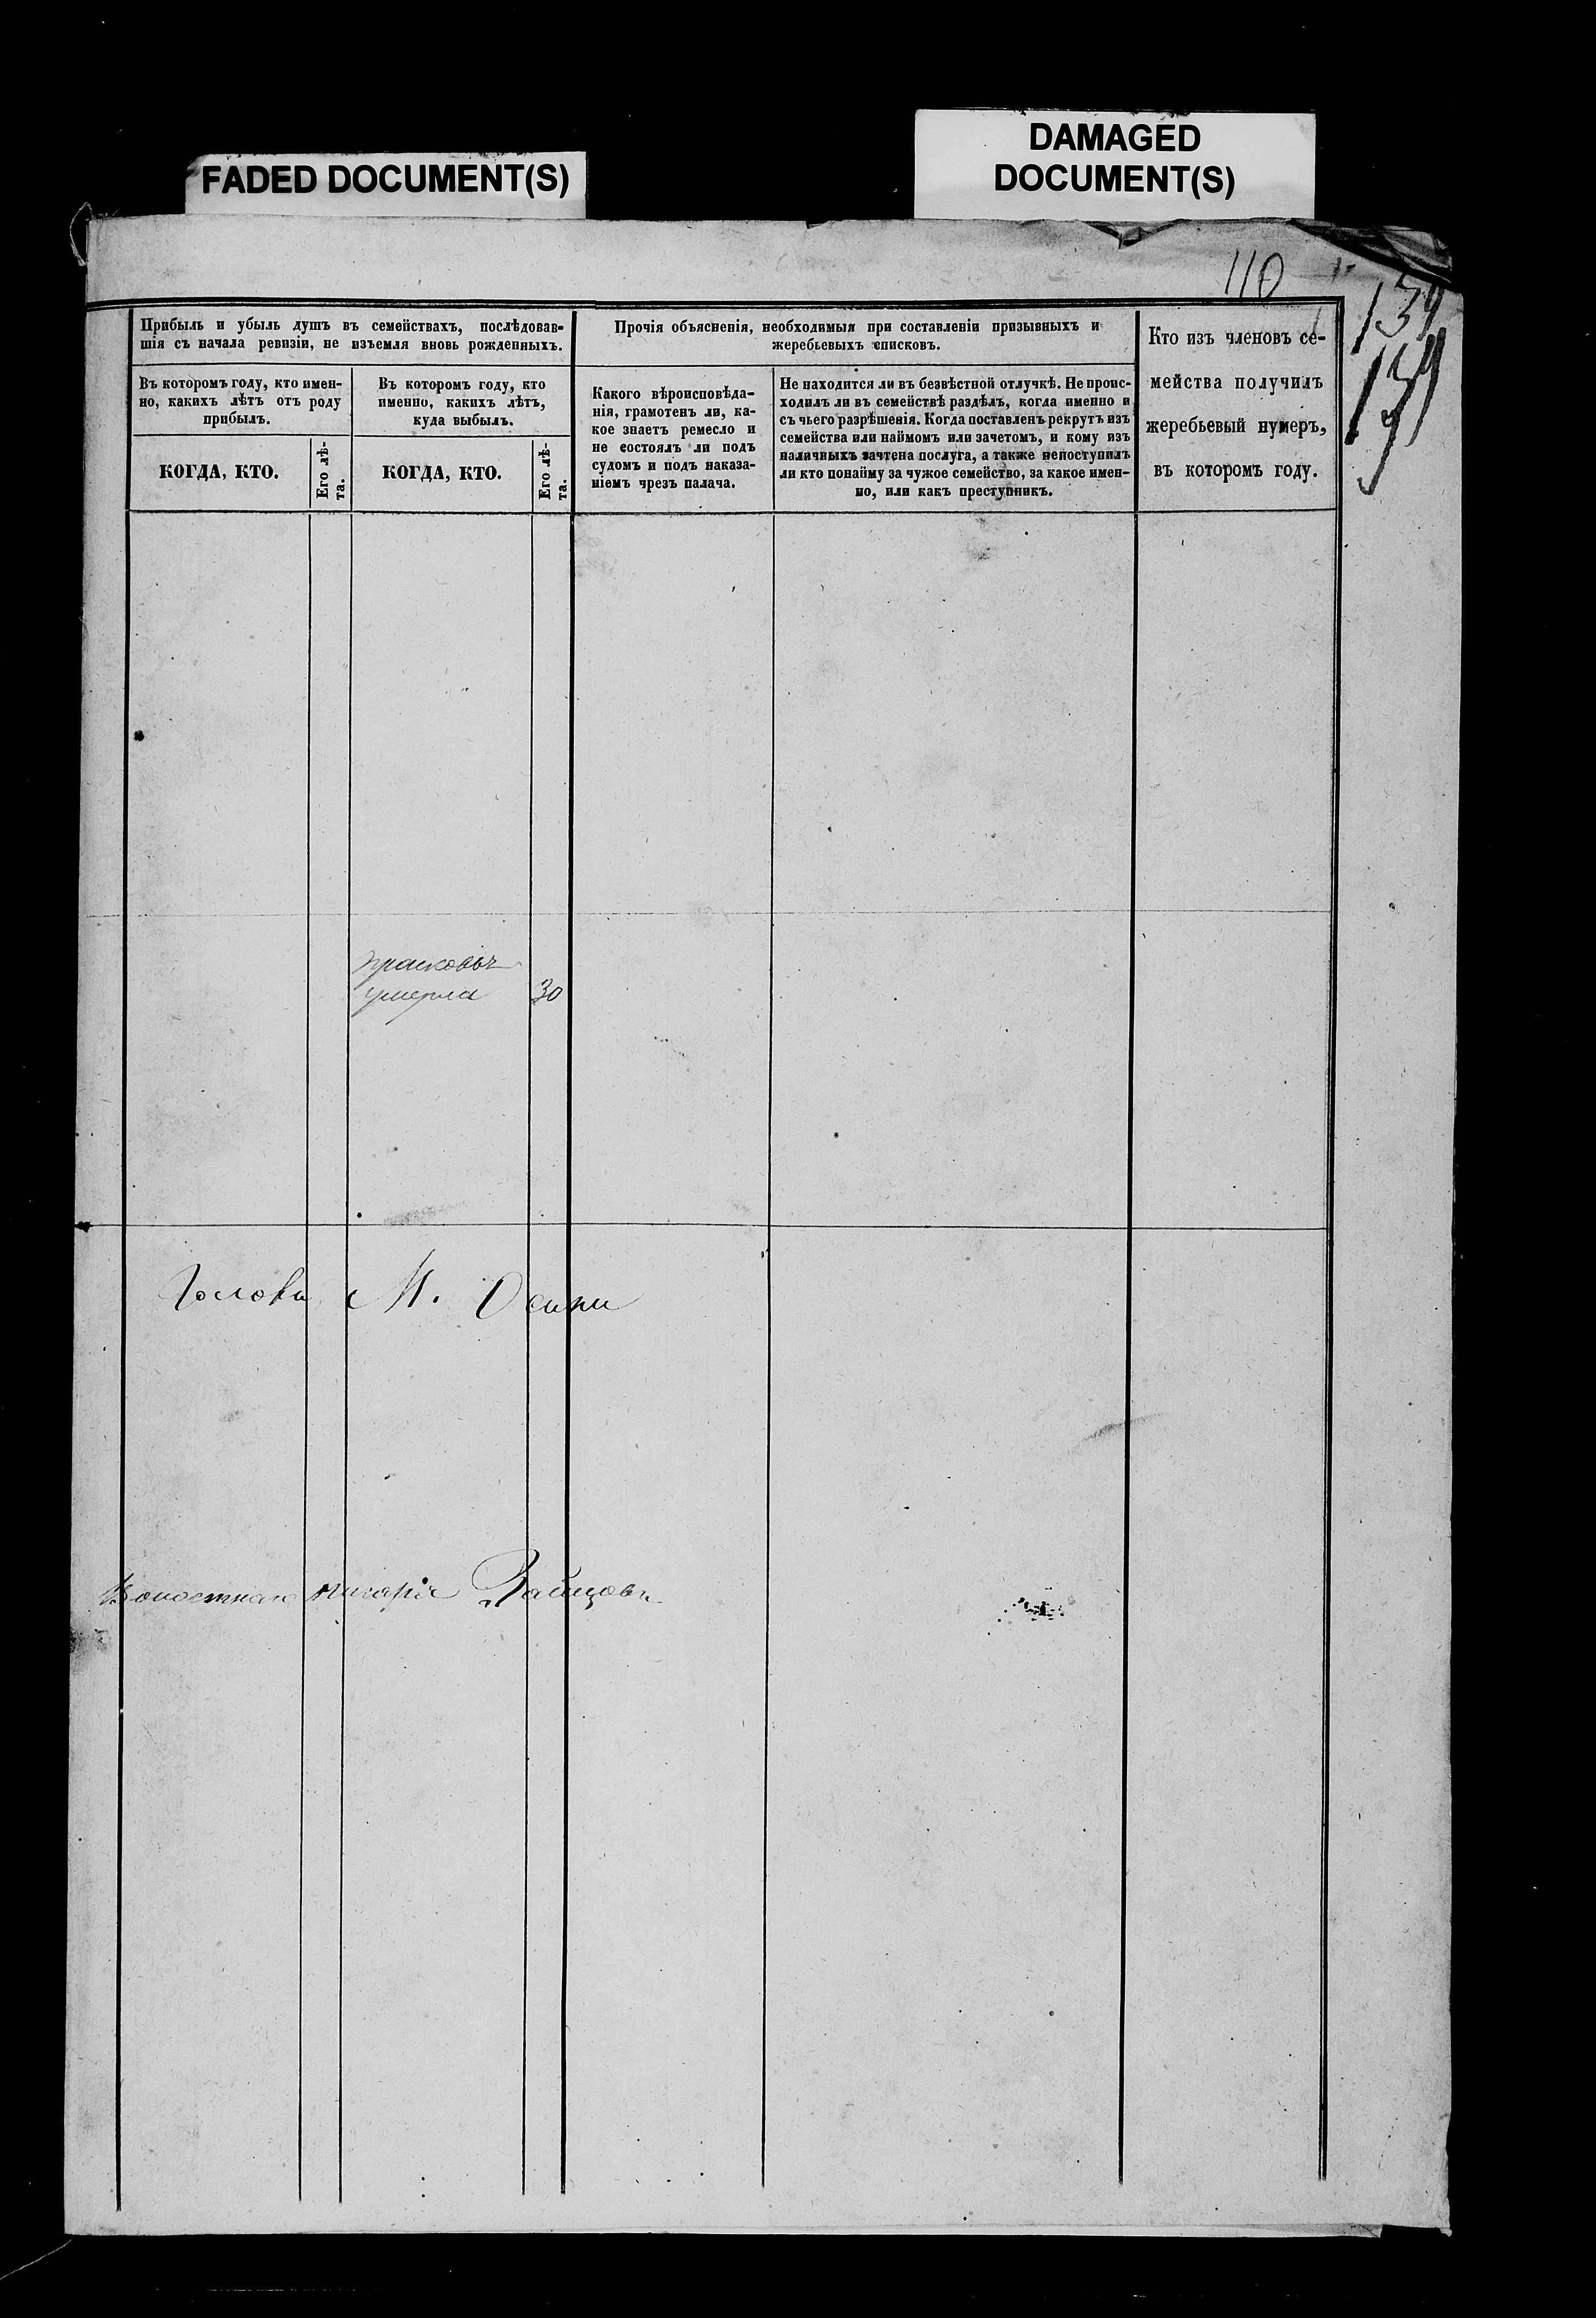 FADED DOCUMENT(S)
DAMAGED
DOCUMENT(S)
110
139
139
Прибыль и убыль душъ въ семействахъ, послѣдовав-
шія съ начала ревизіи, не изъемля вновь рожденныхъ.
Въ которомъ году, кто имен-
но, какихъ лѣтъ отъ роду
прибылъ.
КОГДА, КТО.
Его лѣ-
та.
Въ которомъ году, кто
именно, какихъ лѣтъ,
куда выбылъ.
КОГДА, КТО.
Его лѣ-
та.
Прочія объясненія, необходимыя при составленіи призывныхъ и
жеребьевыхъ списковъ.
Какого вѣроисповѣда-
нія, грамотенъ ли, ка-
кое знаетъ ремесло и
не состоялъ ли подъ
судомъ и подъ наказа-
ніемъ чрезъ палача.
Не находится ли въ безвѣстной отлучкѣ. Не проис-
ходилъ ли въ семействѣ раздѣлъ, когда именно и
съ чьего разрѣшенія. Когда поставленъ рекрутъ изъ
семейства или наймомъ или зачетомъ, и кому изъ
наличныхъ зачтена послуга, а также непоступилъ
ли кто понайму за чужое семейство, за какое имен-
но, или какъ преступникъ.
Кто изъ членовъ се-
мейства получилъ
жеребьевый нумеръ,
въ которомъ году.
прасковья
умерла 30
Голова М.
писарь Зайцовъ